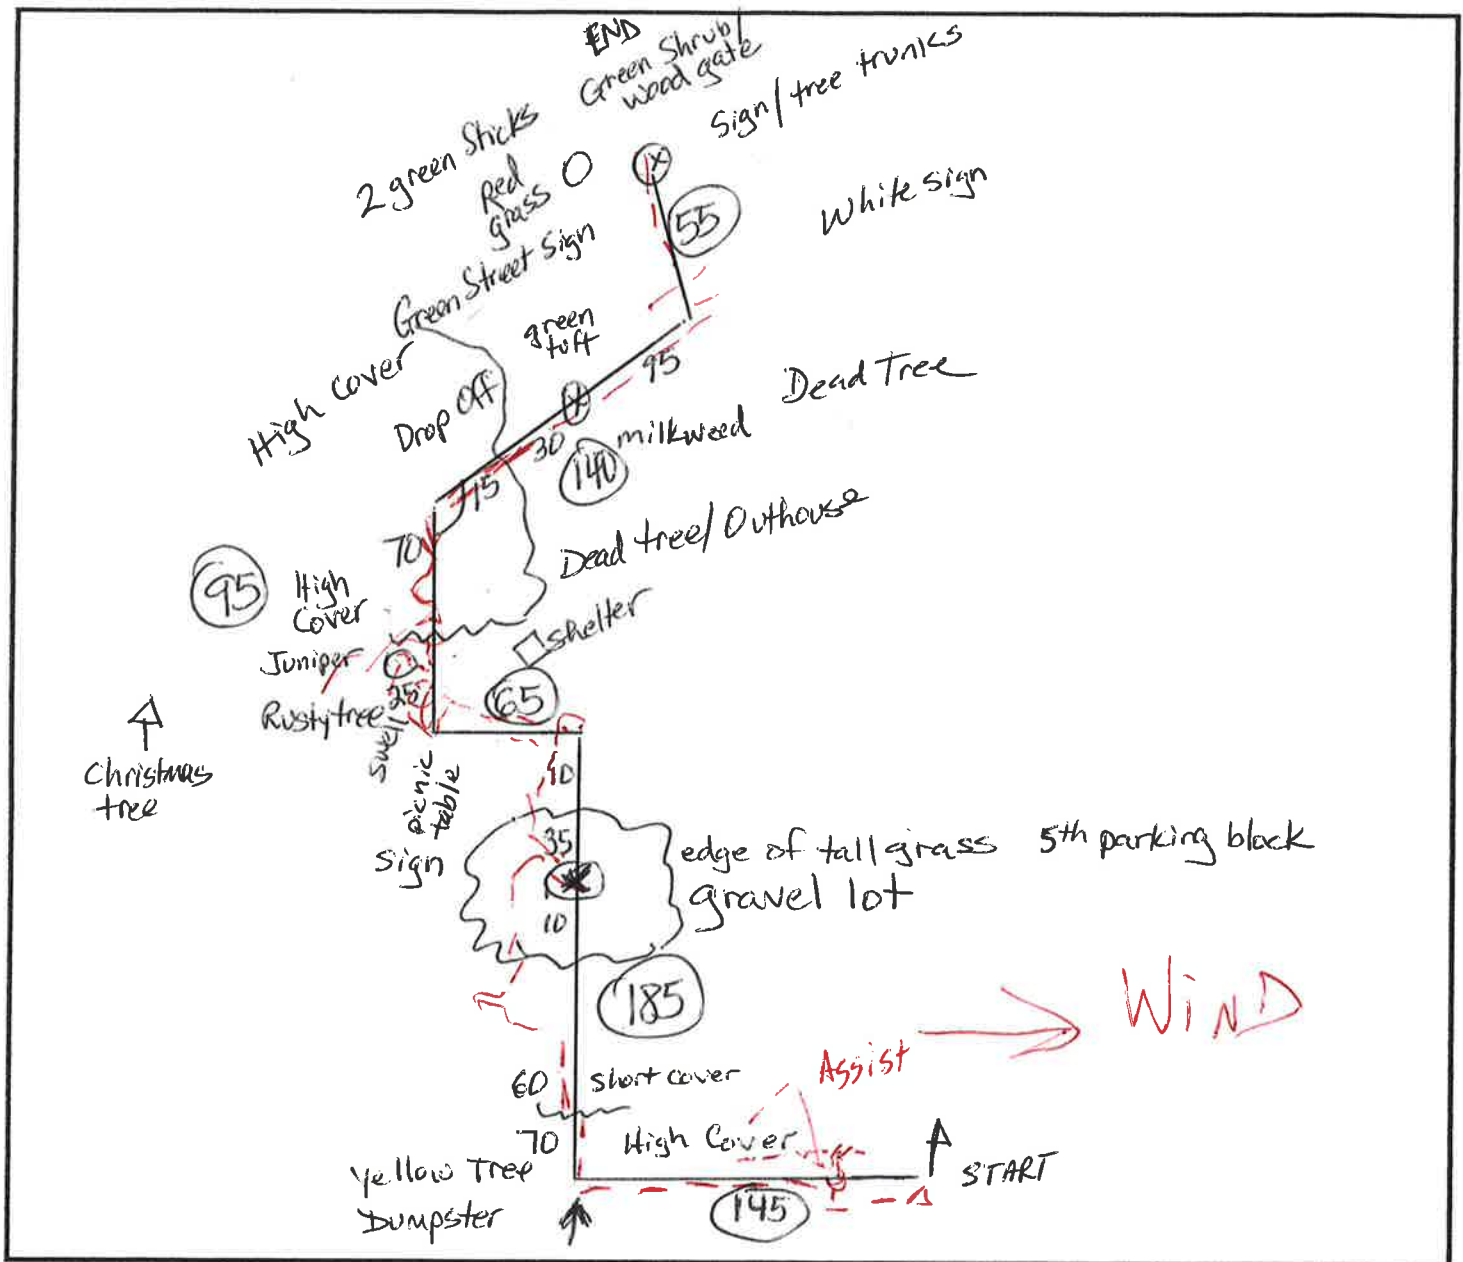 END
Green Shrub/
wood gate
Sign/tree trunks
2 green Sticks
Red
grass
55
White sign
Green Street Sign
green
tuft
High Cover
Drop Off
95
Dead Tree
30
milkweed
15
140
70
Dead tree/Outhouse
95
High
Cover
shelter
Juniper
25
65
Rusty tree
swell
Christmas
tree
picnic
table
10
sign
35
edge of tall grass 5th parking block
gravel lot
10
185
WIND
Assist
60
short cover
70
High Cover
START
Yellow Tree
Dumpster
145